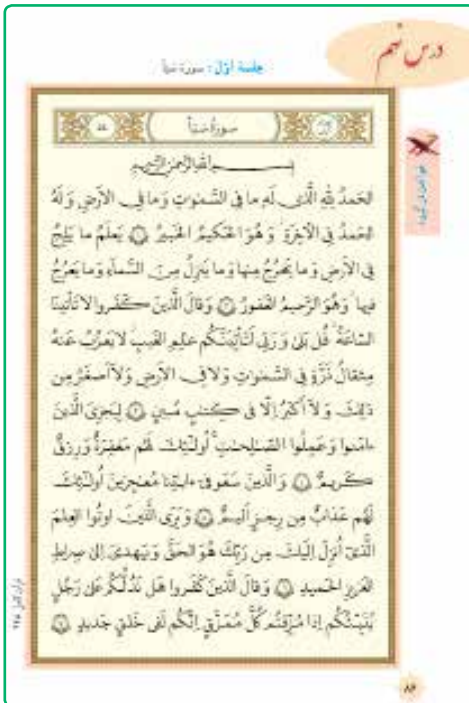 درس نهم
جلسهٔ اوّل : سورهٔ سَبَأ
سورة سبأ
بسم الله الرحمن الرحيم
الحَمدُ لِلّٰهِ الَّذی لَهو ما فِی السَّمٰوٰتِ وَما فِی الاَرضِ وَلَهُ
الحَمدُ فِی الآخِرَةِ وَهُوَ الحَکیمُ الخَبیرُ ۱ یَعلَمُ ما یَلِجُ
فِی الاَرضِ وَما یَخرُجُ مِنها وَما یَنزِلُ مِنَ السَّماءِ وَما یَعرُجُ
فیها وَهُوَ الرَّحیمُ الغَفورُ ۲ وَقالَ الَّذینَ کَفَروا لا تَأتینَا
السّاعَةُ قُل بَلیٰ وَرَبّی لَتَأتِیَنَّکُم عالِمِ الغَیبِ لا یَعزُبُ عَنهُ
مِثقالُ ذَرَّةٍ فِی السَّمٰوٰتِ وَلا فِی الاَرضِ وَلا اَصغَرُ مِن
ذٰلِکَ وَلا اَکبَرُ اِلّا فی کِتٰبٍ مُبینٍ ۳ لِیَجزِیَ الَّذینَ
ءامَنوا وَعَمِلُوا الصّٰلِحٰتِ اُولٰئِکَ لَهُم مَغفِرَةٌ وَرِزقٌ
کَریمٌ ۴ وَالَّذینَ سَعَو فی ءایٰتِنا مُعٰجِزینَ اُولٰئِکَ
لَهُم عَذابٌ مِن رِجزٍ اَلیمٌ ۵ وَیَرَی الَّذینَ اوتُوا العِلمَ
الَّذی اُنزِلَ اِلَیکَ مِن رَبِّکَ هُوَ الحَقَّ وَیَهدی اِلیٰ صِراطِ
العَزیزِ الحَمیدِ ۶ وَقالَ الَّذینَ کَفَروا هَل نَدُلُّکُم عَلیٰ رَجُلٍ
یُنَبِّئُکُم اِذا مُزِّقتُم کُلَّ مُمَزَّقٍ اِنَّکُم لَفی خَلقٍ جَدیدٍ ۷